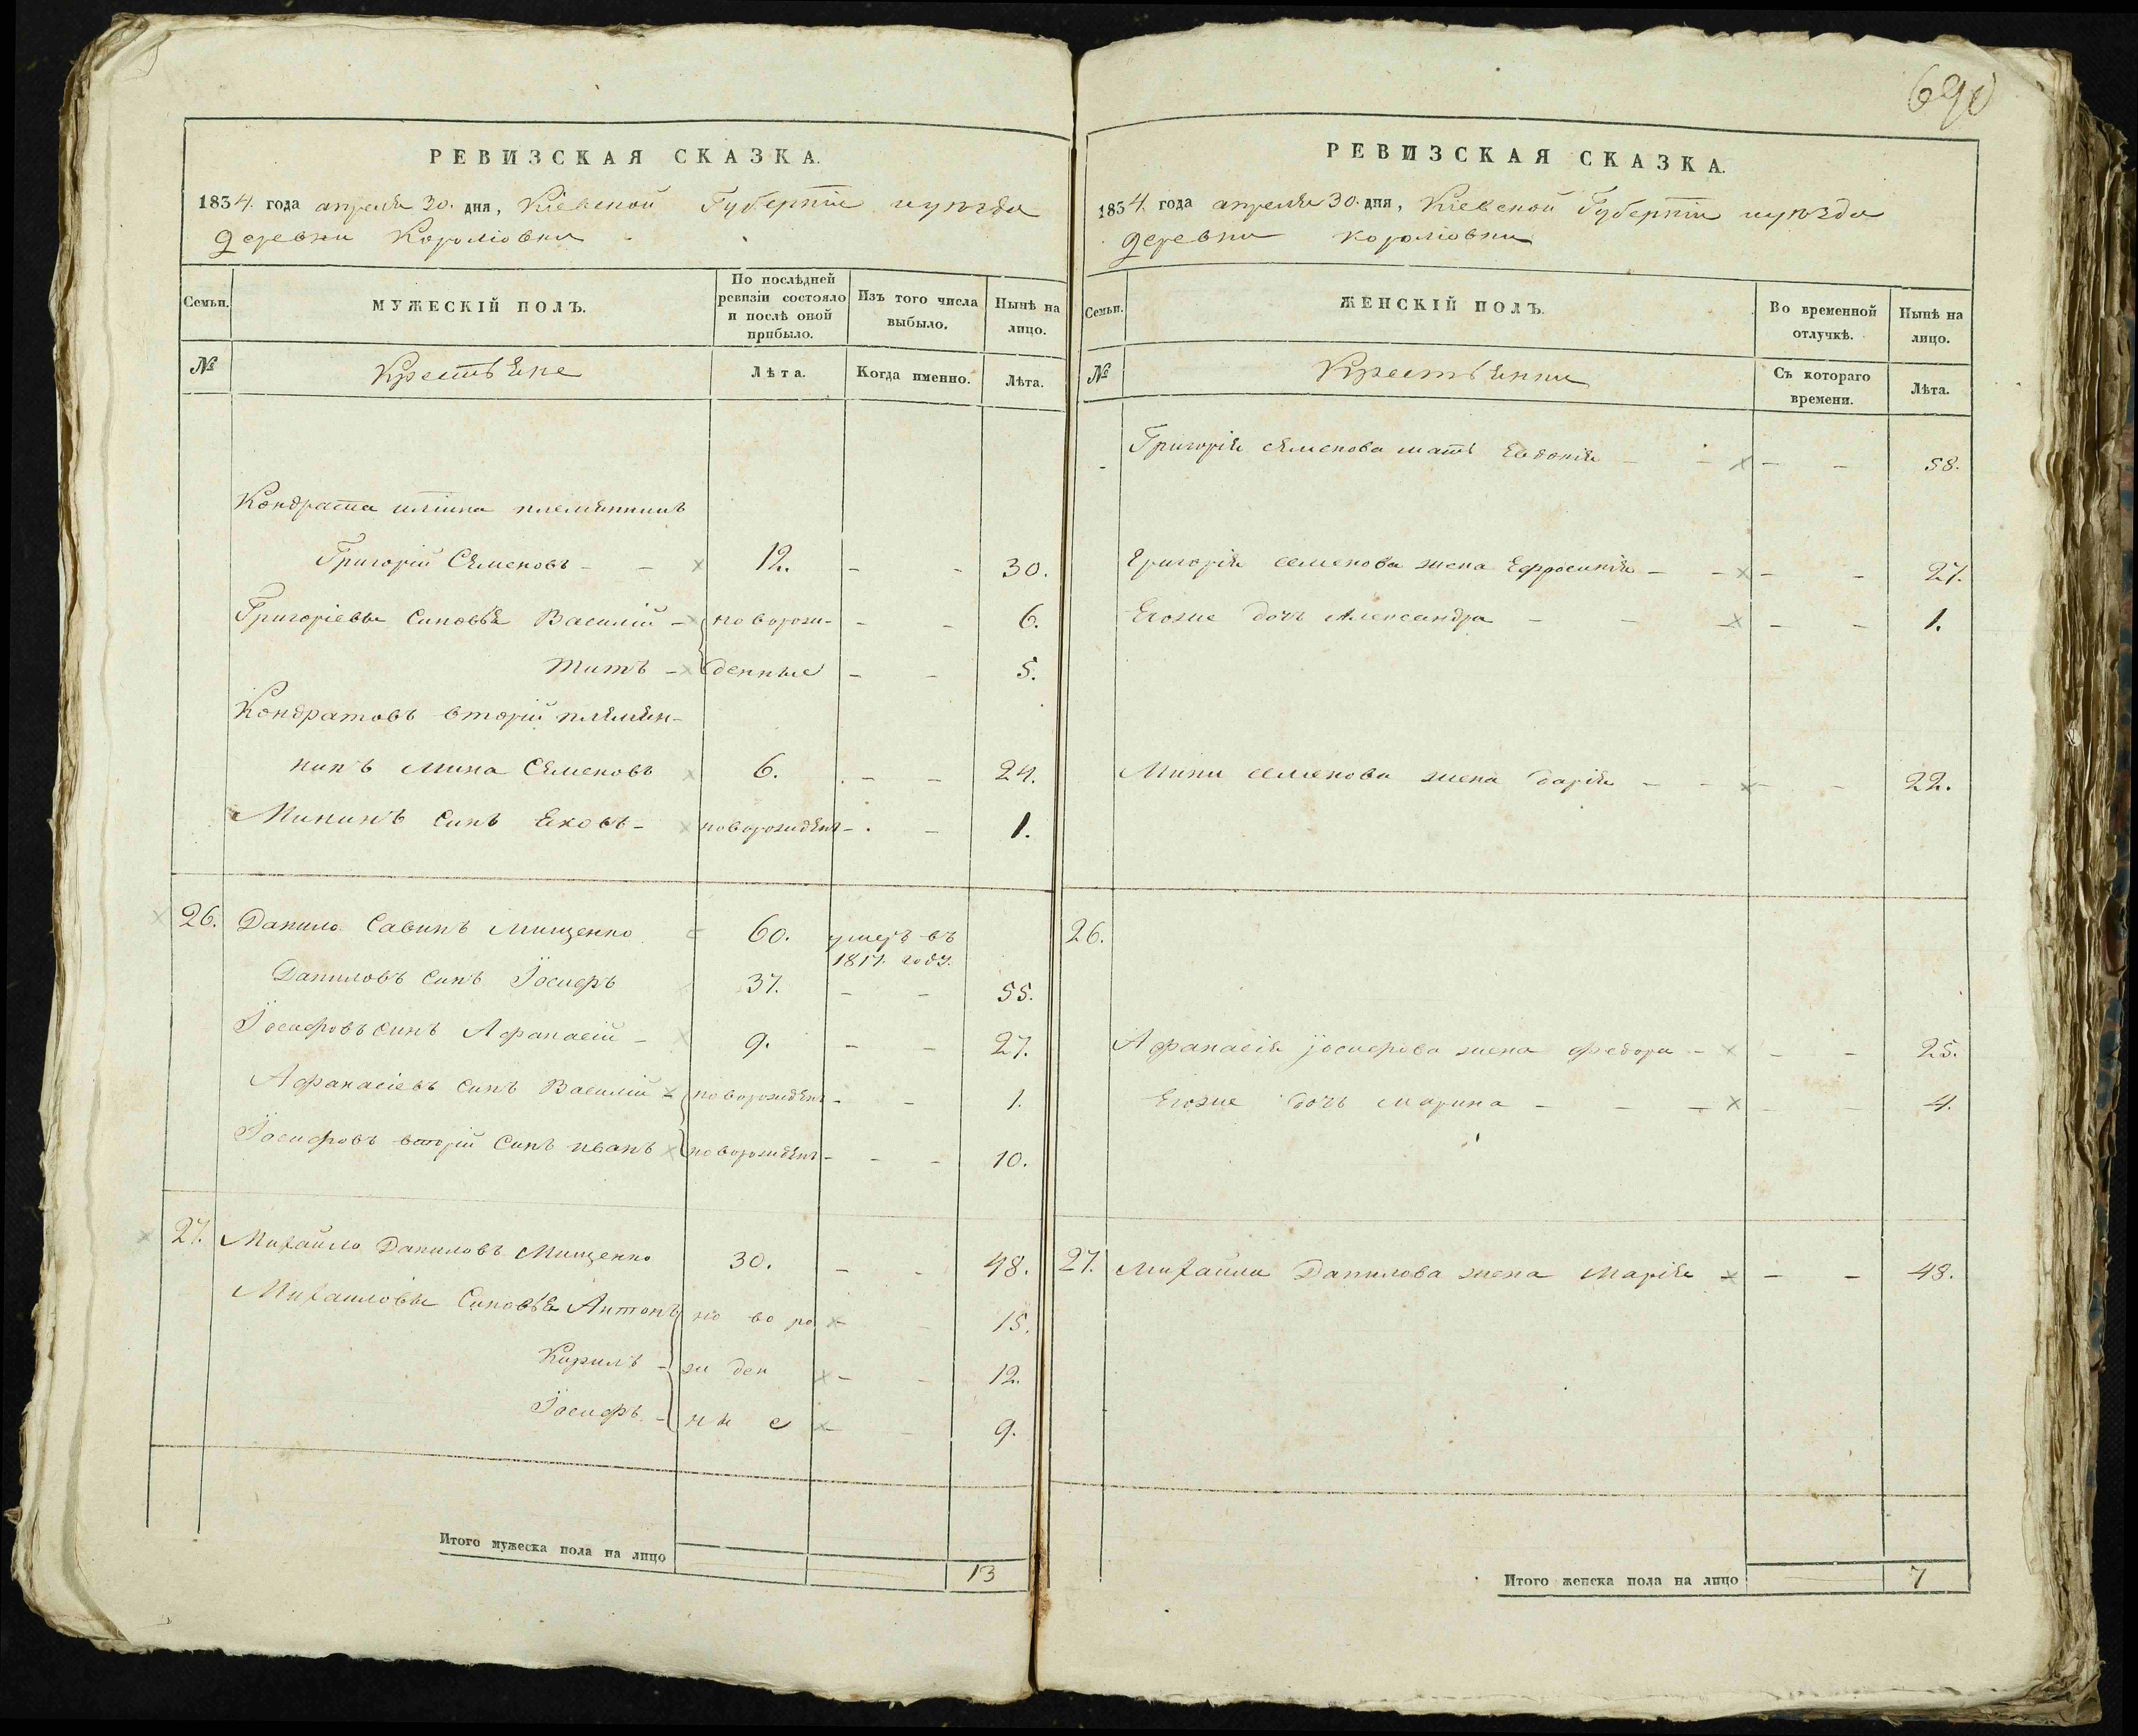 690
РЕВИЗСКАЯ СКАЗКА.
1834. года апреля 30. дня, Кіевской Губерніи и уезда
деревни Королювки
Семьи.
МУЖЕСКІЙ ПОЛЪ.
По послѣдней ревизіи состояло и послѣ оной прибыло.
Изъ того числа выбыло.
Нынѣ на лицо.
№
Крестьяне
Лѣта.
Когда именно.
Лѣта.
Кондрата племянникъ
Григорій Семеновъ - - 12. - - 30.
Григоріевы Синовья Василій - новорож- - - 6.
Титъ - денные - - 5.
Кондратовъ вторій племян-
никъ Мина Семеновъ 6. - - 24.
Мининъ Синъ Яковъ - новорожден - - 1.
26. Данило Савинъ Мищенко 60. умеръ въ
1817. году.
Даниловъ Синъ Іосифъ 37. - - 55.
Іосифовъ синъ Афанасій - 9. - - 27.
Афанасіевъ Синъ Василій - новорожден - - 1.
Іосифовъ вторій Синъ иванъ новорожден - - - 10.
27. Михайло Даниловъ Мищенко 30. - - 48.
Михаиловы Синовья Антонъ но во ро - - 15.
Кирилъ - ж ден - - 12.
Іосифъ - ны е - - 9.
Итого мужеска пола на лицо 13
РЕВИЗСКАЯ СКАЗКА.
1834. года апреля 30. дня, Кіевской Губерніи и уезда
деревни королювки
Семьи.
ЖЕНСКІЙ ПОЛЪ.
Во временной отлучкѣ.
Нынѣ на лицо.
№
Крестьянки
Съ котораго времени.
Лѣта.
Григорія семенова мать Евдокія - - - - 58.
Григорія семенова жена Ефросинія - - - - 27.
Егоже дочъ Александра - - - - - 1.
Мини семенова жена Дарія - - - - 22.
26.
Афанасія іосифова жена федора - - - 25.
Егоже дочъ марина - - - - - 4.
27. Михайла Данилова жена Марія - - - 48.
Итого женска пола на лицо 7